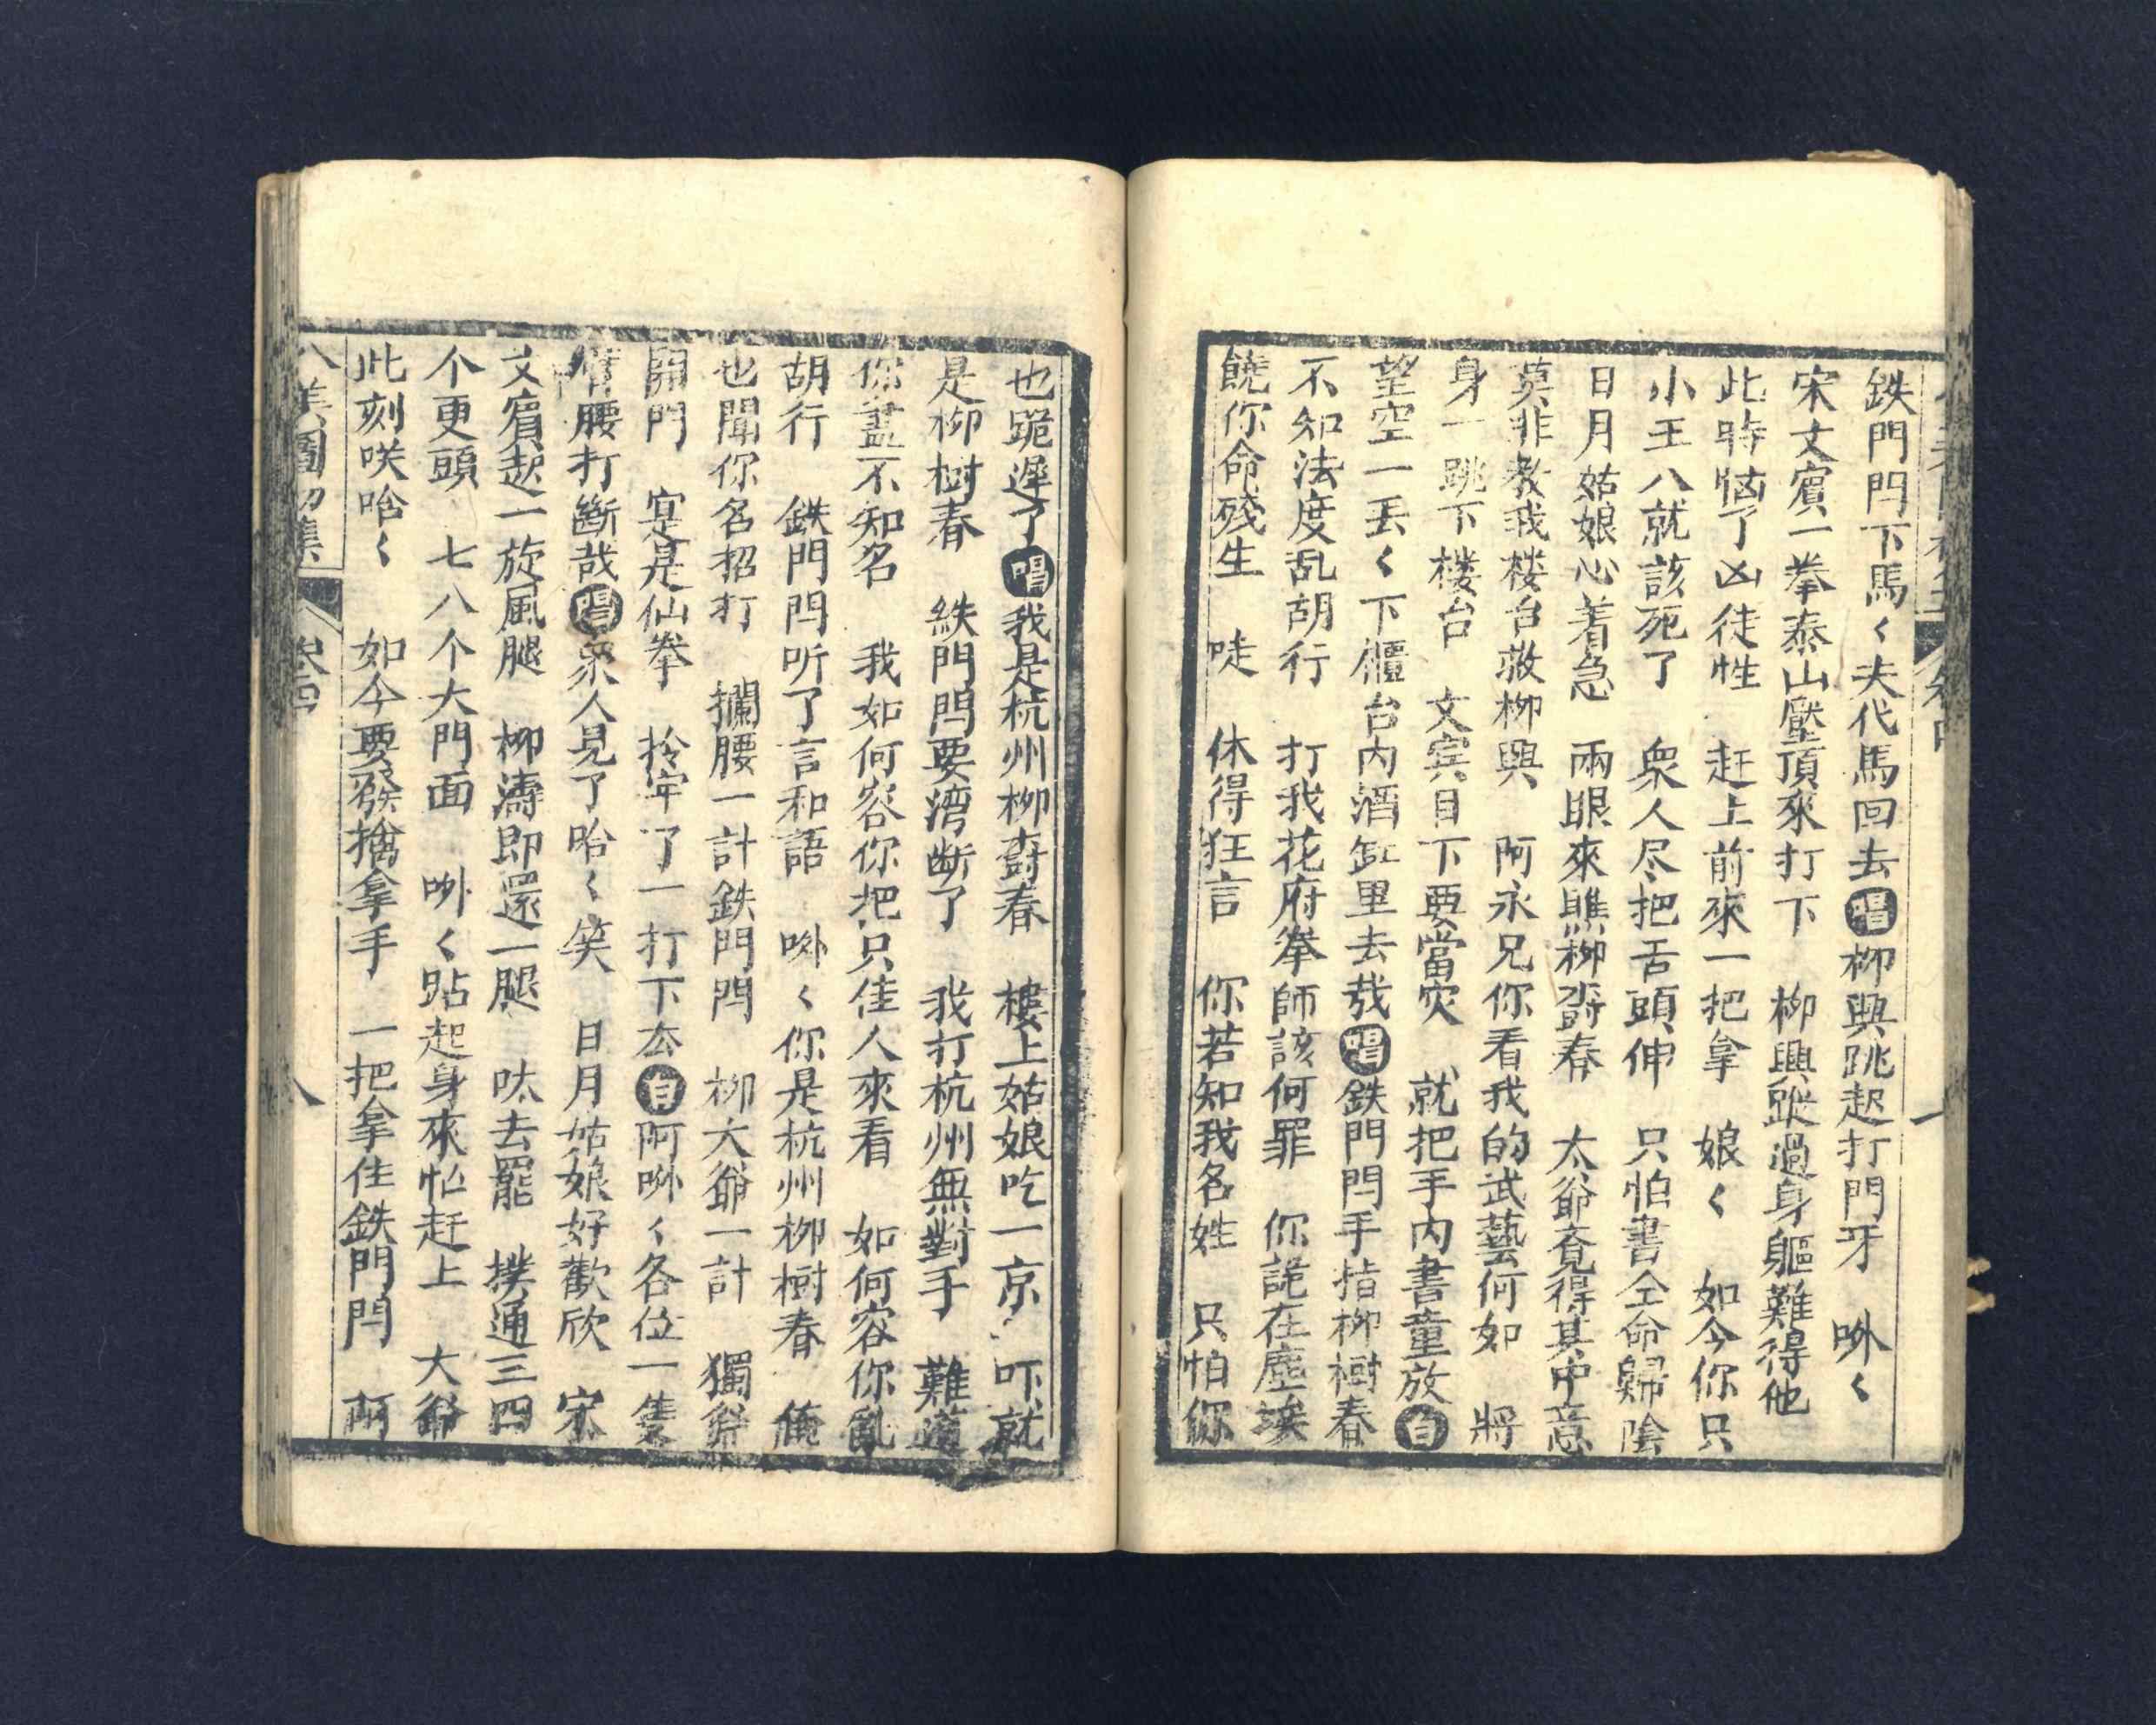 鉄門閂下馬〱夫代馬回去唱柳興跳起打門牙 唦〱
宋文賓一拳泰山壓頂來打下 柳興蹤過身軀難得他
此時惱了凶徒性 赶上前來一把拿 娘〱 如今你只
小王八就該死了 衆人尽把舌頭伸 只怕書仝命歸陰
日月姑娘心着急 兩眼來瞧柳壽春 太爺竟得其中意
莫非教我楼台救柳興 阿永兄你看我的武藝何如 將
身一跳下楼台 文宾目下要當灾 就把手內書童放白
望空一丟〱下櫃台內酒缸里去哉唱鉄門閂手指柳樹春
不知法度乱胡行 打我花府拳師該何罪 你跪在塵埃
饒你命殘生 唗 休得狂言 你若知我名姓 只怕你
也跪遲了唱我是杭州柳壽春 樓上姑娘吃一京 吓就
是柳樹春 鉄門閂要湾断了 我打杭州無對手 難道
你盡不知名 我如何容你把只佳人來看 如何容你亂
胡行 鉄門閂听了言和語 唦〱你是杭州柳樹春 俺
也聞你名招打 攔腰一計鉄門閂 柳大爺一計 獨劈
開門 寔是仙拳 拎牢了一打下去白阿唦〱各位一隻
腰打斷哉唱衆人見了哈〱笑 日月姑娘好歡欣 宋
文賓起一旋風腿 柳濤即還一腿 呔去罷 撲通三四
个更頭 七八个大門面 唦〱跕起身來忙赶上 大爺
此刻咲哈〱 如今要發擒拿手 一把拿住鉄門閂 阿
八美圖初集 卷四 八